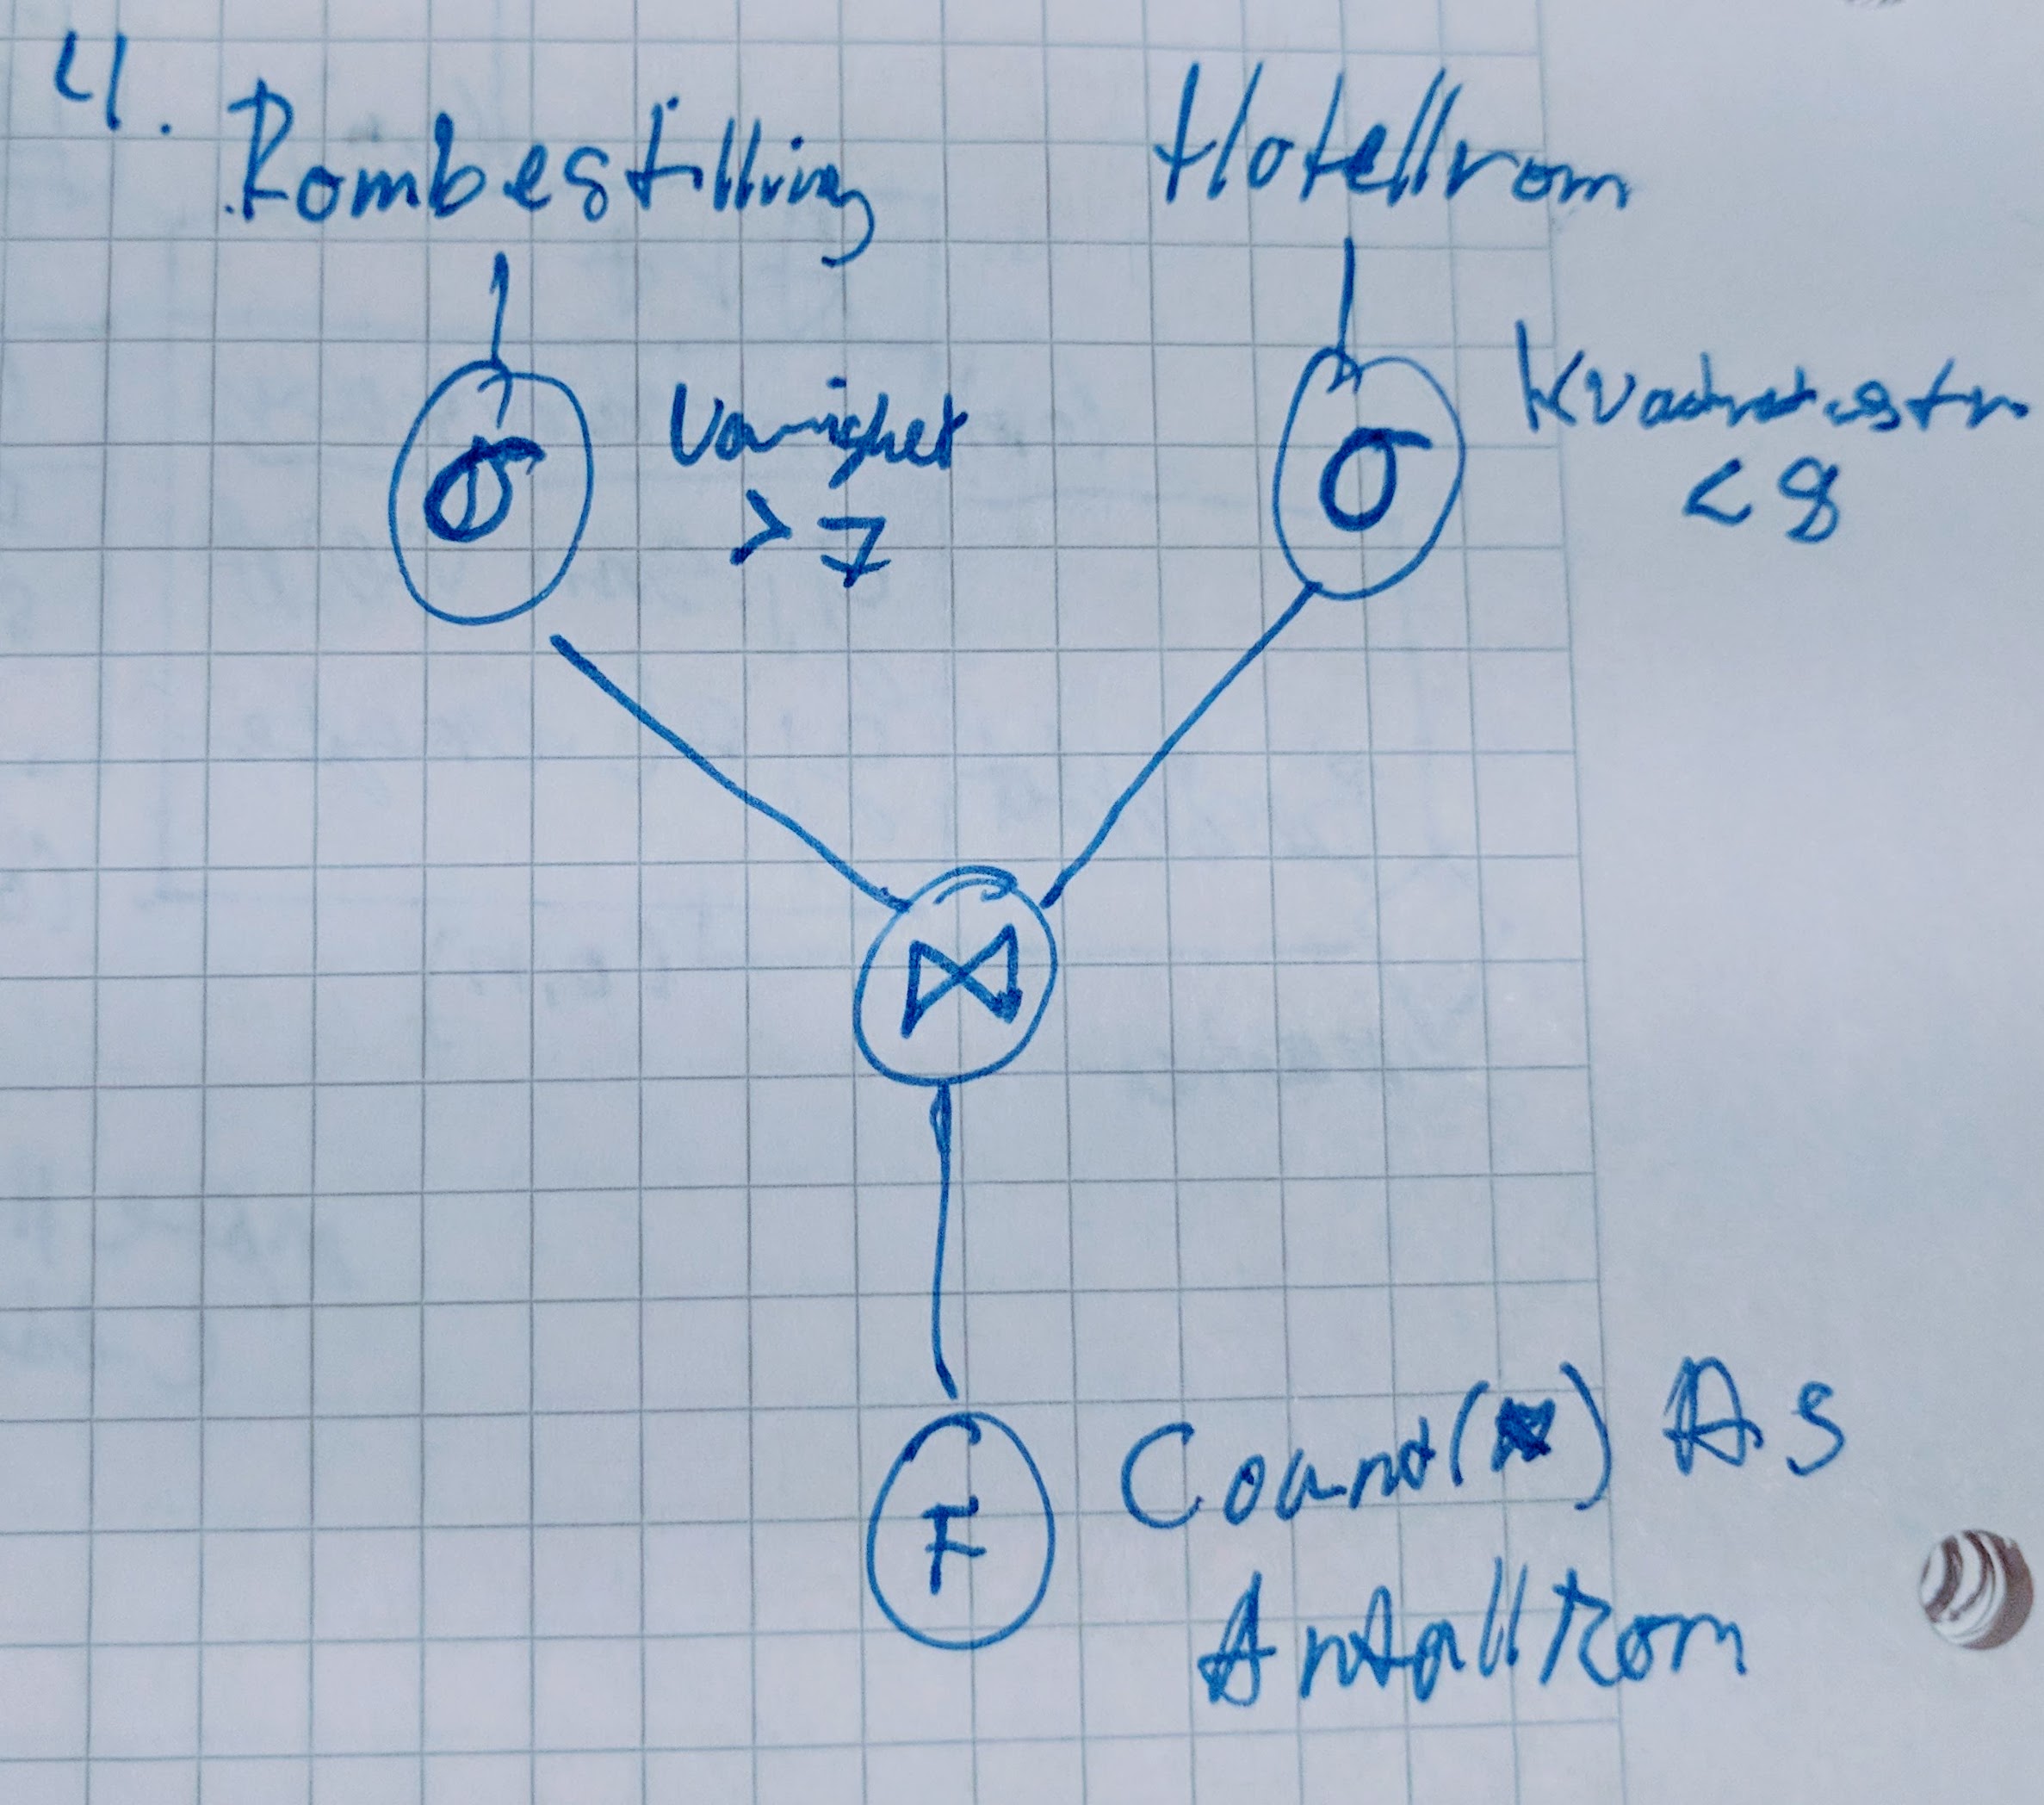 4.
Rombestilling
Hotellrom
σ
Varighet
> 7
σ
< 8
⋈
F
Count(*) As
AntallRom